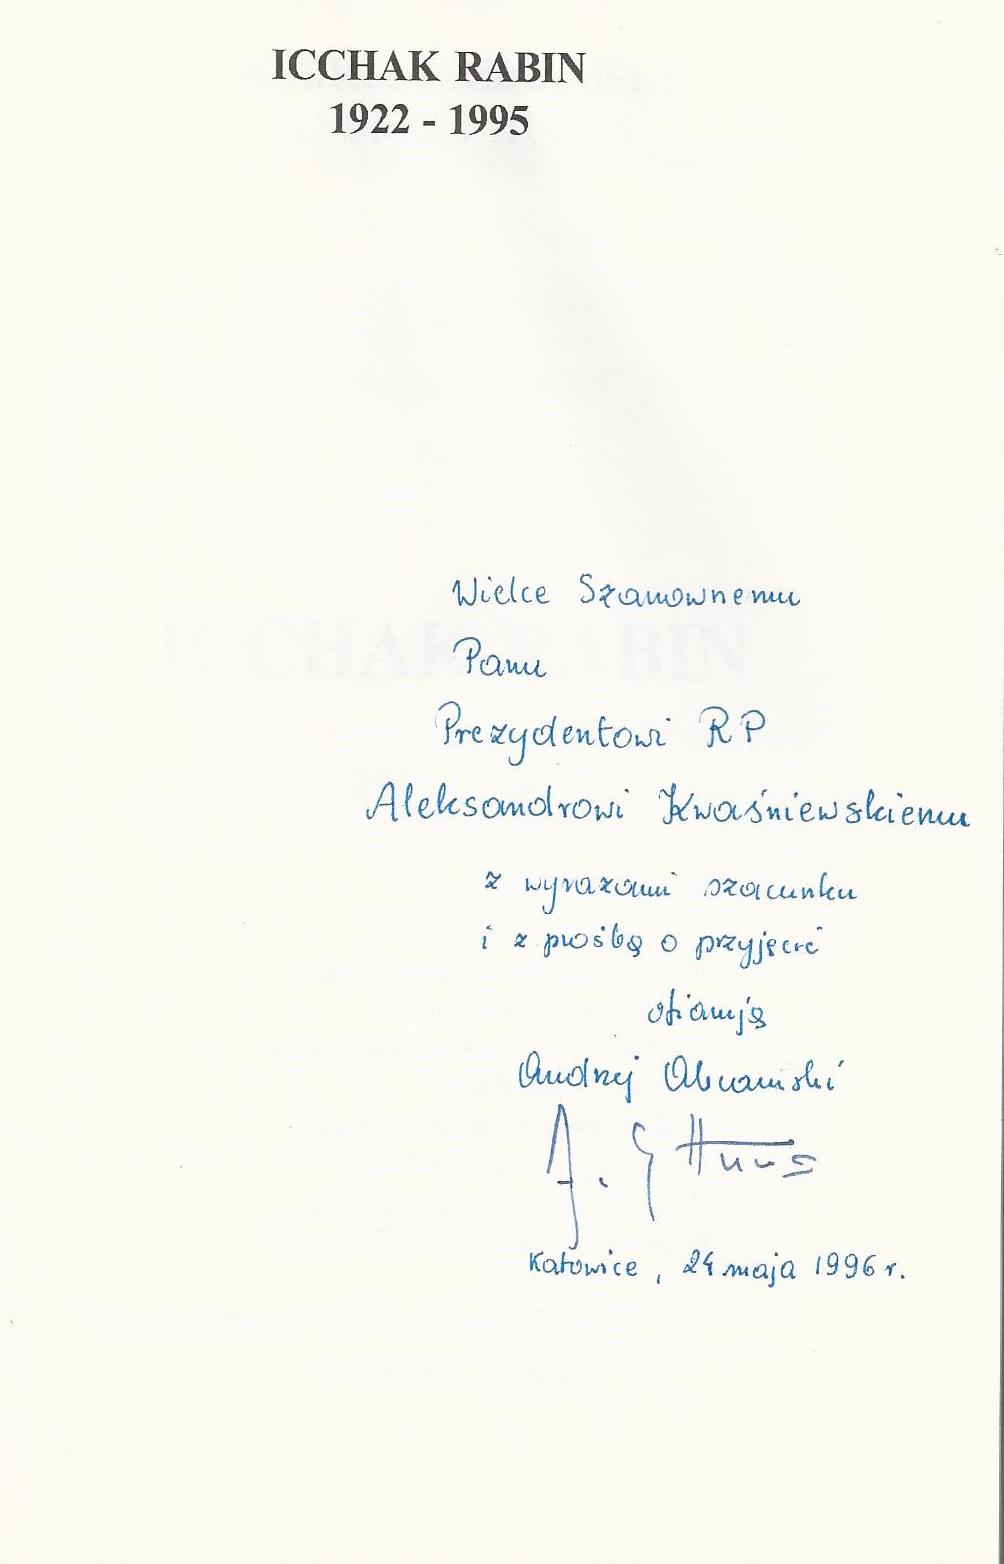 ICCHAK RABIN
1922 - 1995
Wielce Szanownemu
Panu
Prezydentowi RP
Aleksandrowi Kwaśniewskiemu
z wyrazami szacunku
i z prośbą o przyjęcie
ofiaruję
Andrzej
Katowice, 24 maja 1996 r.